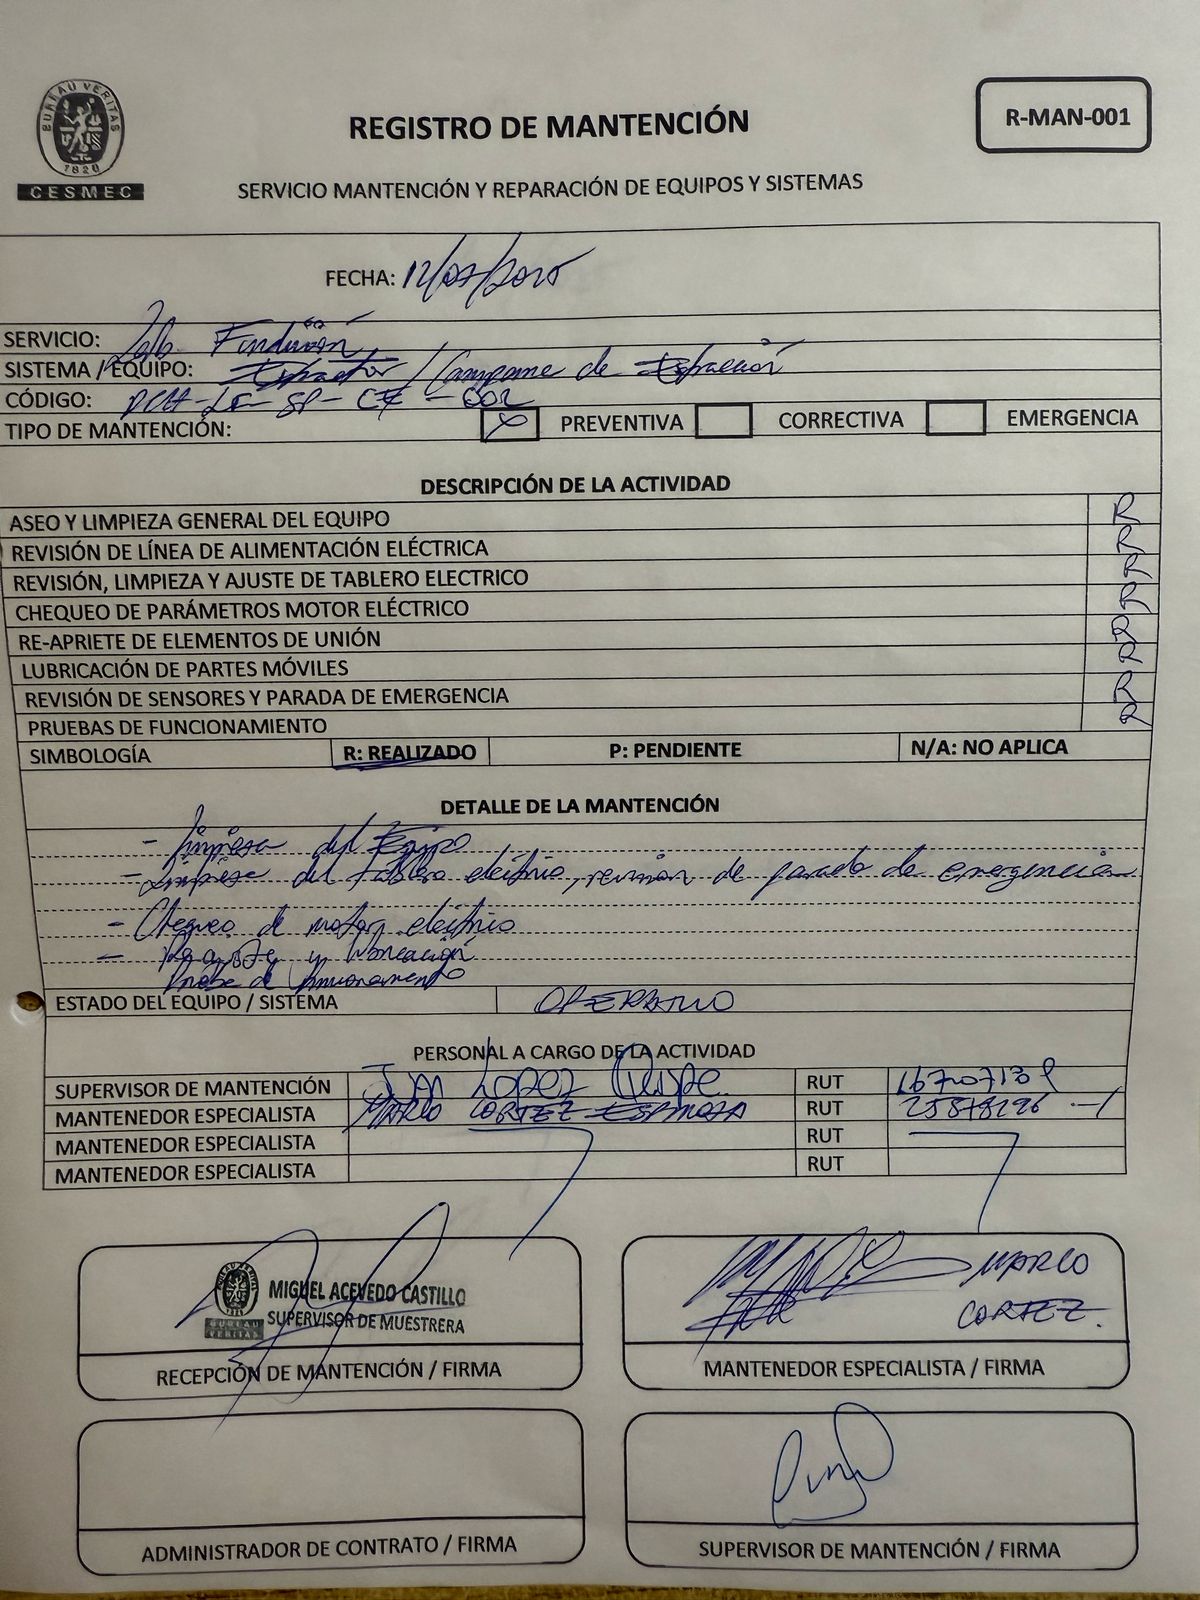 BUREAU VERITAS
1828
CESMEC
REGISTRO DE MANTENCIÓN
R-MAN-001
SERVICIO MANTENCIÓN Y REPARACIÓN DE EQUIPOS Y SISTEMAS
FECHA: 12/07/2025
SERVICIO: Lab. Fundición
SISTEMA / EQUIPO: Extractor / Campana de Extracción
CÓDIGO:
TIPO DE MANTENCIÓN: X PREVENTIVA CORRECTIVA EMERGENCIA
DESCRIPCIÓN DE LA ACTIVIDAD
ASEO Y LIMPIEZA GENERAL DEL EQUIPO R
REVISIÓN DE LÍNEA DE ALIMENTACIÓN ELÉCTRICA R
REVISIÓN, LIMPIEZA Y AJUSTE DE TABLERO ELECTRICO R
CHEQUEO DE PARÁMETROS MOTOR ELÉCTRICO R
RE-APRIETE DE ELEMENTOS DE UNIÓN R
LUBRICACIÓN DE PARTES MÓVILES R
REVISIÓN DE SENSORES Y PARADA DE EMERGENCIA R
PRUEBAS DE FUNCIONAMIENTO R
SIMBOLOGÍA R: REALIZADO P: PENDIENTE N/A: NO APLICA
DETALLE DE LA MANTENCIÓN
- Limpieza del Equipo
- Limpieza del tablero electrico, revision de parada de emergencia
- Chequeo de motor electrico
- Reajuste y lubricación
Prueba de funcionamento
ESTADO DEL EQUIPO / SISTEMA OPERATIVO
PERSONAL A CARGO DE LA ACTIVIDAD
SUPERVISOR DE MANTENCIÓN JUAN LOPEZ Quispe RUT
MANTENEDOR ESPECIALISTA MARCO CORTEZ ESPINOZA RUT
MANTENEDOR ESPECIALISTA RUT
MANTENEDOR ESPECIALISTA RUT
BUREAU VERITAS
1828
BUREAU VERITAS
MIGUEL ACEVEDO CASTILLO
SUPERVISOR DE MUESTRERA
RECEPCIÓN DE MANTENCIÓN / FIRMA
MARCO
CORTEZ.
MANTENEDOR ESPECIALISTA / FIRMA
ADMINISTRADOR DE CONTRATO / FIRMA
SUPERVISOR DE MANTENCIÓN / FIRMA